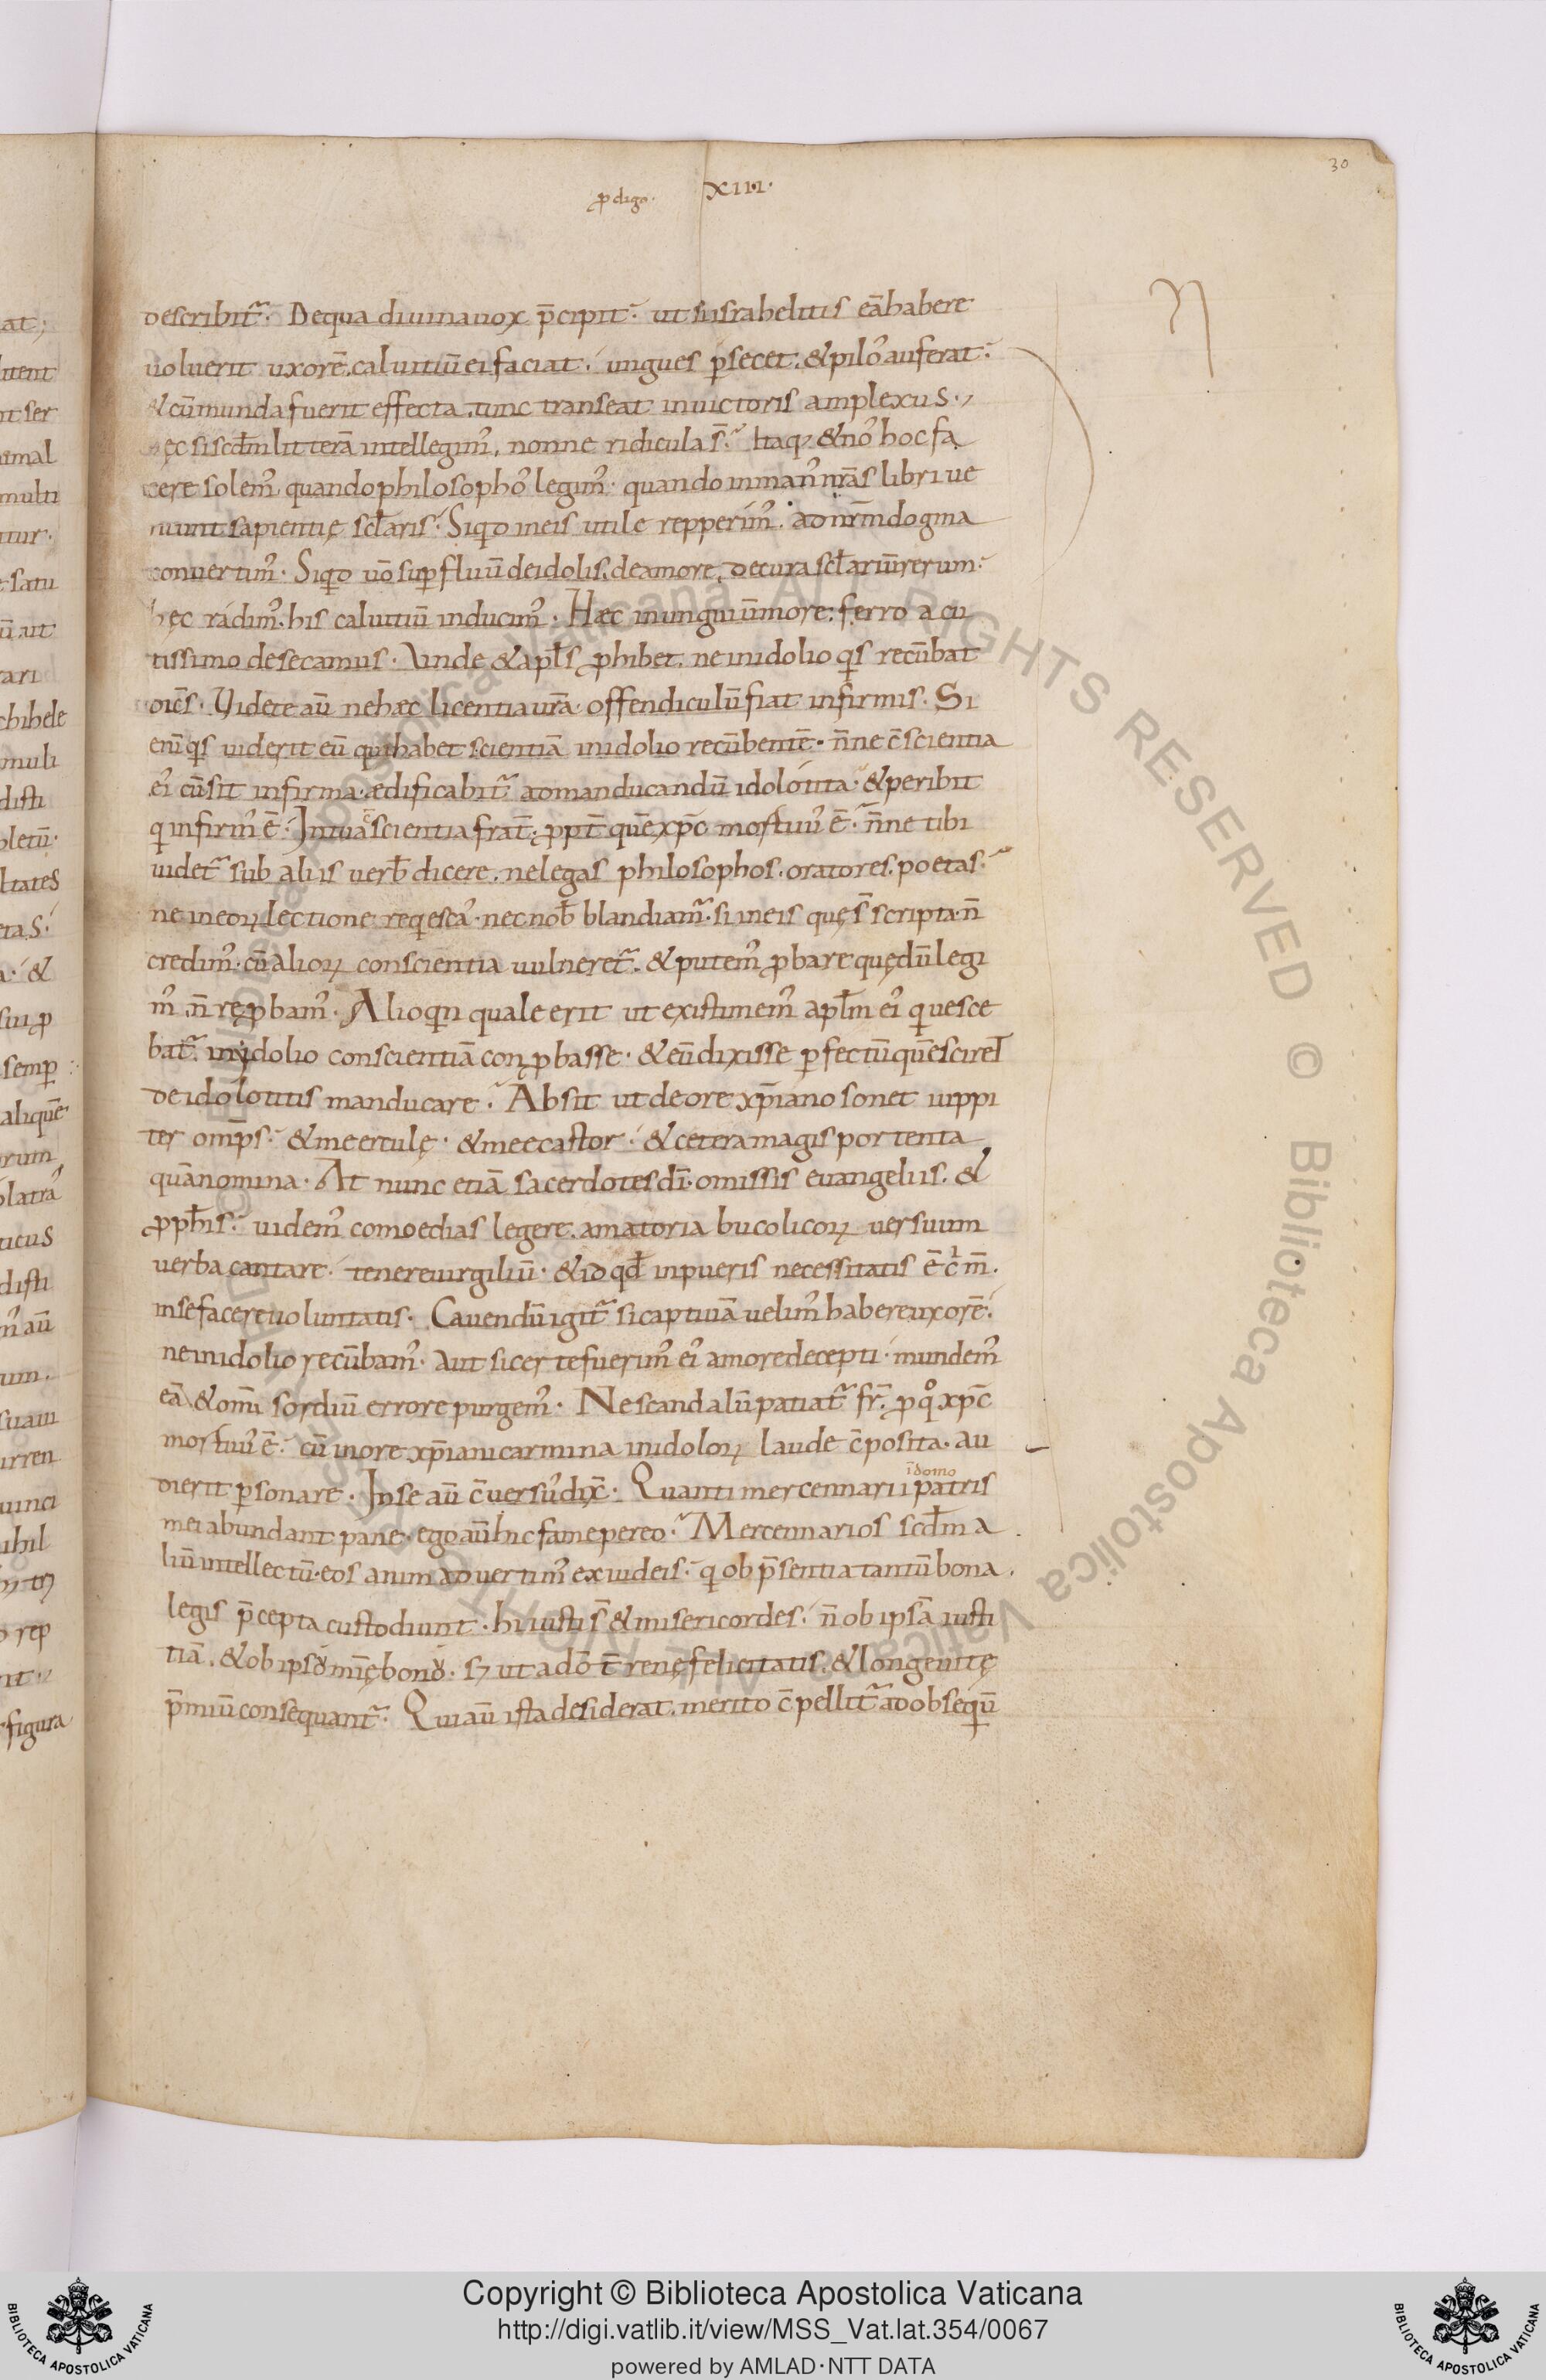 30
ꝓdigo· XIII·
describit᷑· De qua diuina uox p̄cipit· ut si israhelitis eā habere
uoluerit uxorē· caluitiū ei faciat· ungues p̱secet· & pilos auferat·
& cū munda fuerit effecta· tunc transeat in uictoris amplexus·,
ęc si scd̄m litterā intellegim᾿· nonne ridicula s̄· Itaq; & nos hoc fa
cere solem᾿ quando philosophos legim᾿· quando in man᾿ nr̄as libri ue
niunt sapientię scl̄aris· Siqd in eis utile repperim᾿· ad nr̄m dogma
conuertim᾿· Siqd uō suꝑfluū de idolis· de amore· de cura scl̄ariū rerum·
hęc radim᾿· his caluitiū inducim᾿· Hæc in unguiū more· ferro acu
tissimo desecamus· Unde & apl̄s ꝓhibet· ne in idolio qs recūbat
dic̄s· Videte aū ne hæc licentia ur̄a offendiculū fiat infirmis· Si
enī qs uiderit eū qui habet scientiā in idolio recūbentē· n̄ne c̄scientia
ei᾿ cū sit infirma· ædificabit᷑ ad manducandū idolotita· & peribit
q infirm᾿ ē· In tua c̄scientia frat̄· ꝓpt̄ quē xp̄c mortuu᾿ ē· n̄ne tibi
uidet᷑ sub aliis uerb̄ dicere· ne legas philosophos· oratores· poetas·
ne in eoꝝ lectione reqescas· nec nob̄ blandiam᷑· si in eis quę s̄ scripta n̄
credim᾿· cū alioꝝ conscientia uulneret᷑· & putem᾿ ꝓbare quę dū legi
m᾿ n̄ reꝓbam᾿· Alioqn quale erit ut existimem᾿ apl̄m ei᾿ q uesce
bat᷑ in idolio conscientiā conꝓbasse· & eū dixisse ꝑfectū quē sciret
de idolotitis manducare· Absit ut de ore xp̄iano sonet iuppi
ter omp̄s· & meercule· & meecastor· & cetera magis portenta
quā nomina· At nunc etiā sacerdotes dī· omissis euangeliis· &
ꝓph̄is· uidem᾿ comoedias legere· amatoria bucolicoꝝ uersuum
uerba cantare· tenere uirgiliū· & id qd̄ in pueris necessitatis ē c̄m̄·
in se facere uoluntatis· Cauendū igit᷑ si captiuā uelim᾿ habere uxorē·
ne in idolio recūbam᾿· aut si certe fuerim᾿ ei᾿ amore decepti· mundem᾿
eā & omī sordiū errore purgem᾿· Ne scandalū patiat᷑ fr̄· ꝓ qo xp̄c
mortuu᾿ ē· cū in ore xp̄iani carmina in idoloꝝ laude c̄posita· au
dierit ꝑsonare· In se aū c̄uersus dix̄· Quanti mercennarii patris
ī domo
mei abundant pane· ego aū hic fame pereo· Mercennarios scd̄m a
liū intellectū· eos animaduertim᾿ ex iudeis· q ob p̄sentia tantū bona·
legis p̄cepta custodiunt· hi iusti s̄ & misericordes· n̄ ob ipsā iusti
tiā· & ob ipsū mīę bonū· sꝫ ut a dō t̄renę felicitatis· & longe uitę
p̄miū consequant᷑· Qui aū ista desiderat· merito c̄pellit᷑ ad obseqū
Copyright © Biblioteca Apostolica Vaticana
http://digi.vatlib.it/view/MSS_Vat.lat.354/0067
powered by AMLAD·NTT DATA